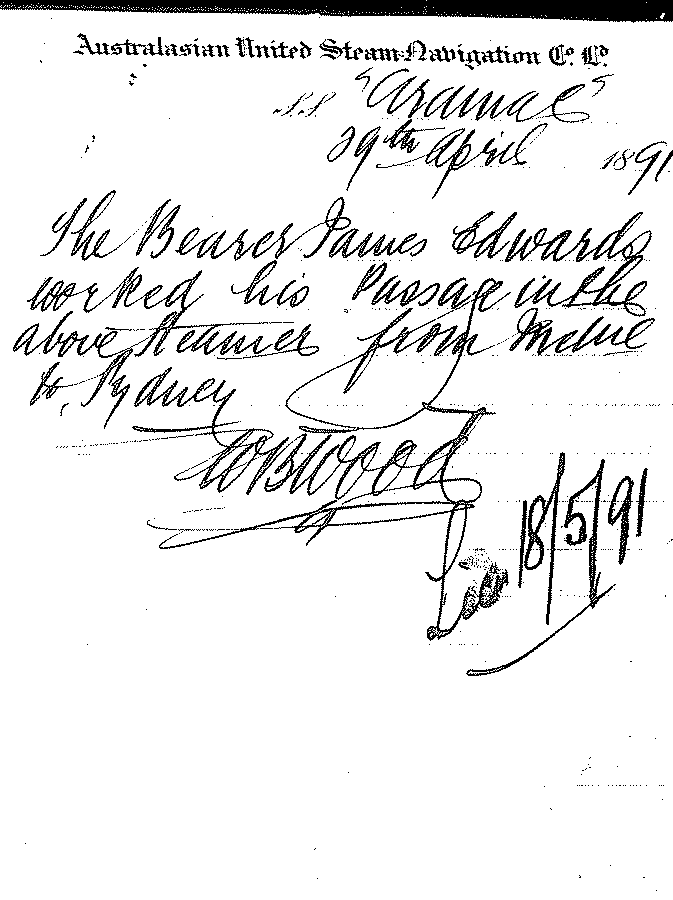 Australasian United Steam Navigation Co. Ld.
S.S. "Aramac"
29th April 1891
The Bearer James Edwards
worked his Passage in the
above Steamer from
to Sydney
WB Wood
18/5/91